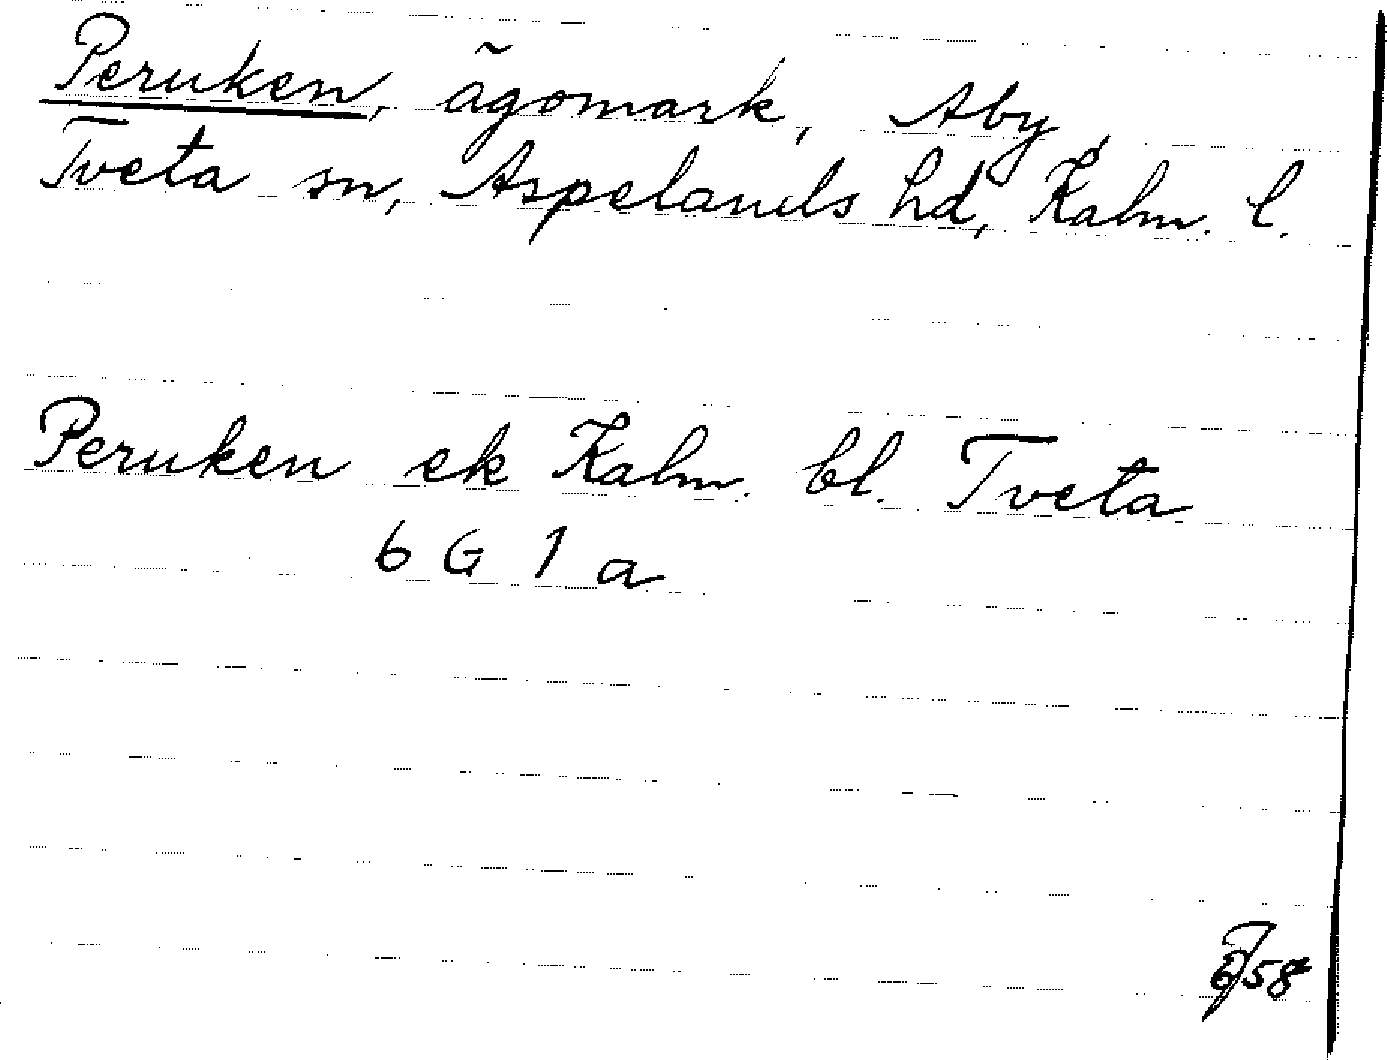 Peruken, ägomark, Aby,
Tveta sn, Aspelands hd, Kalm. l.
Peruken ek Kalm. bl. Tveta
6 G 1 a